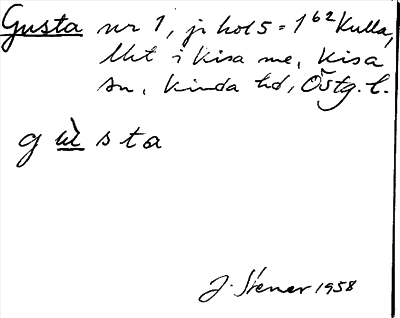 Gusta nr 1, jr kol 5 = 1⁶² Kulla,
Utet i Kisa sn, Kisa
sn, Kinda hd, Östg. l.
g ù s t a
J. Stener 1958